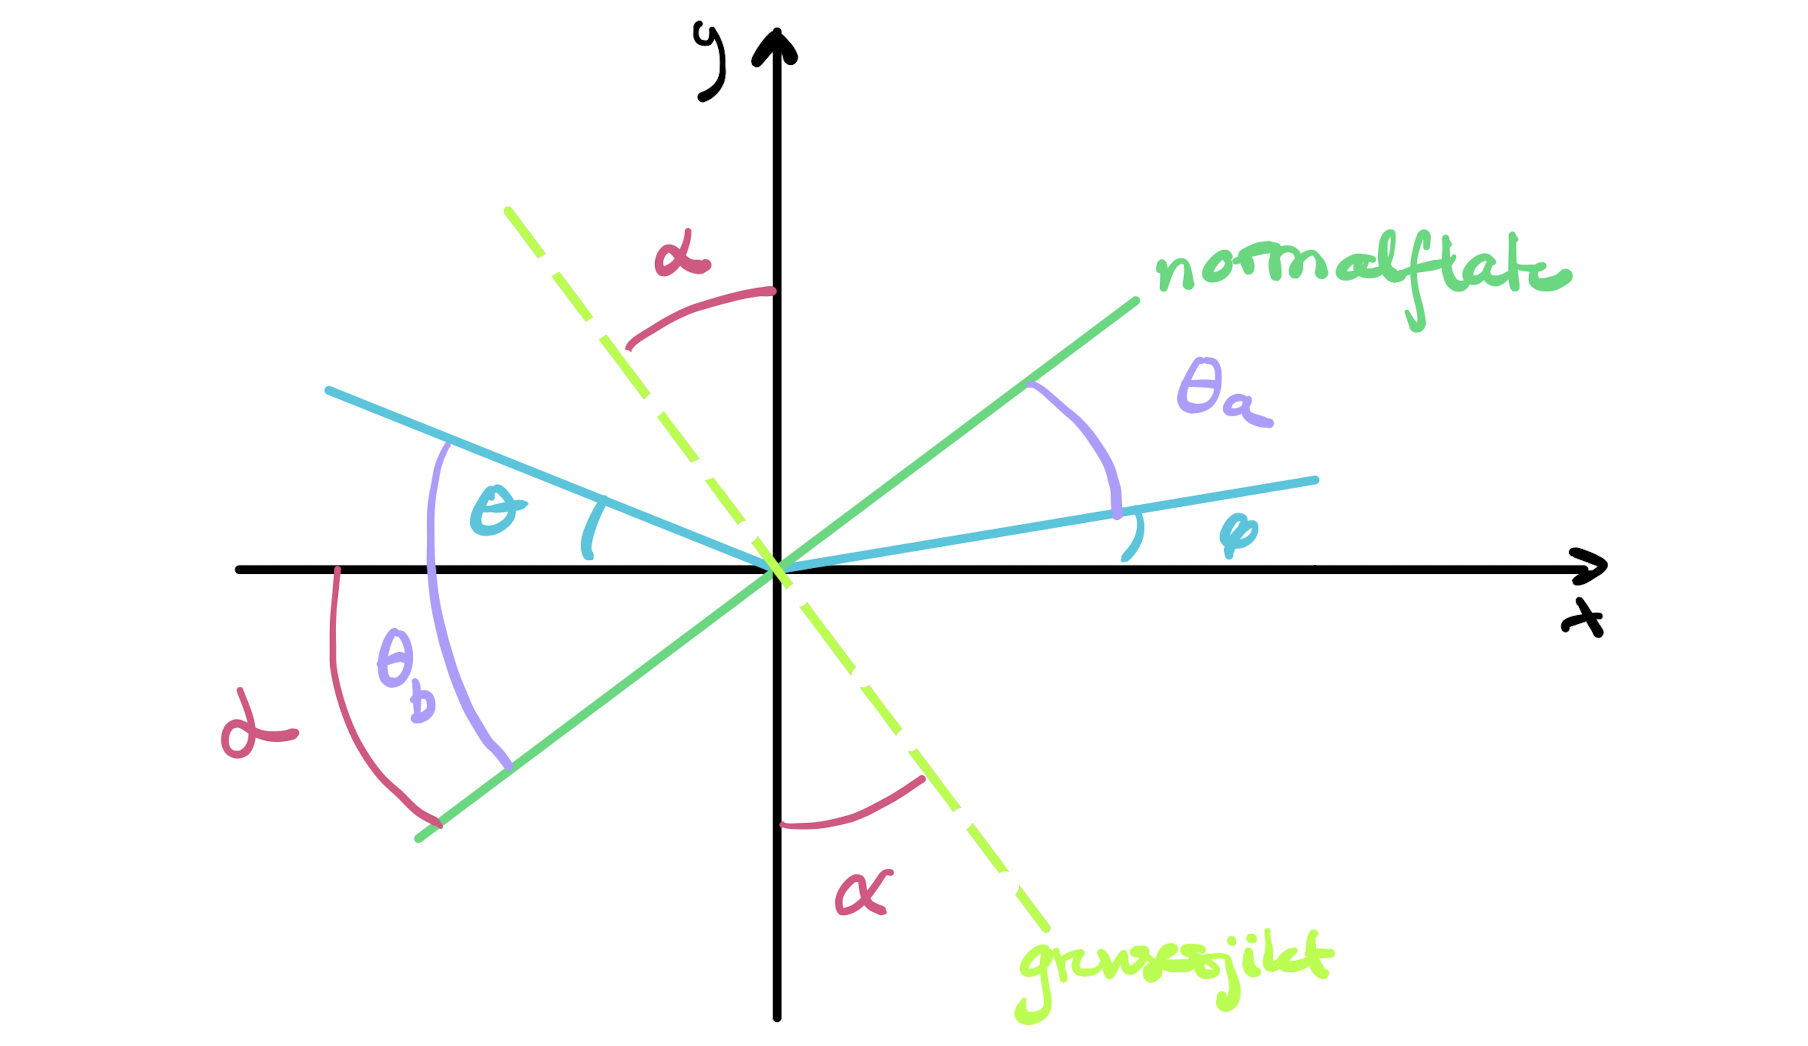 y
α
normalflate
θa
θ
φ
x
θb
α
α
grensesjikt